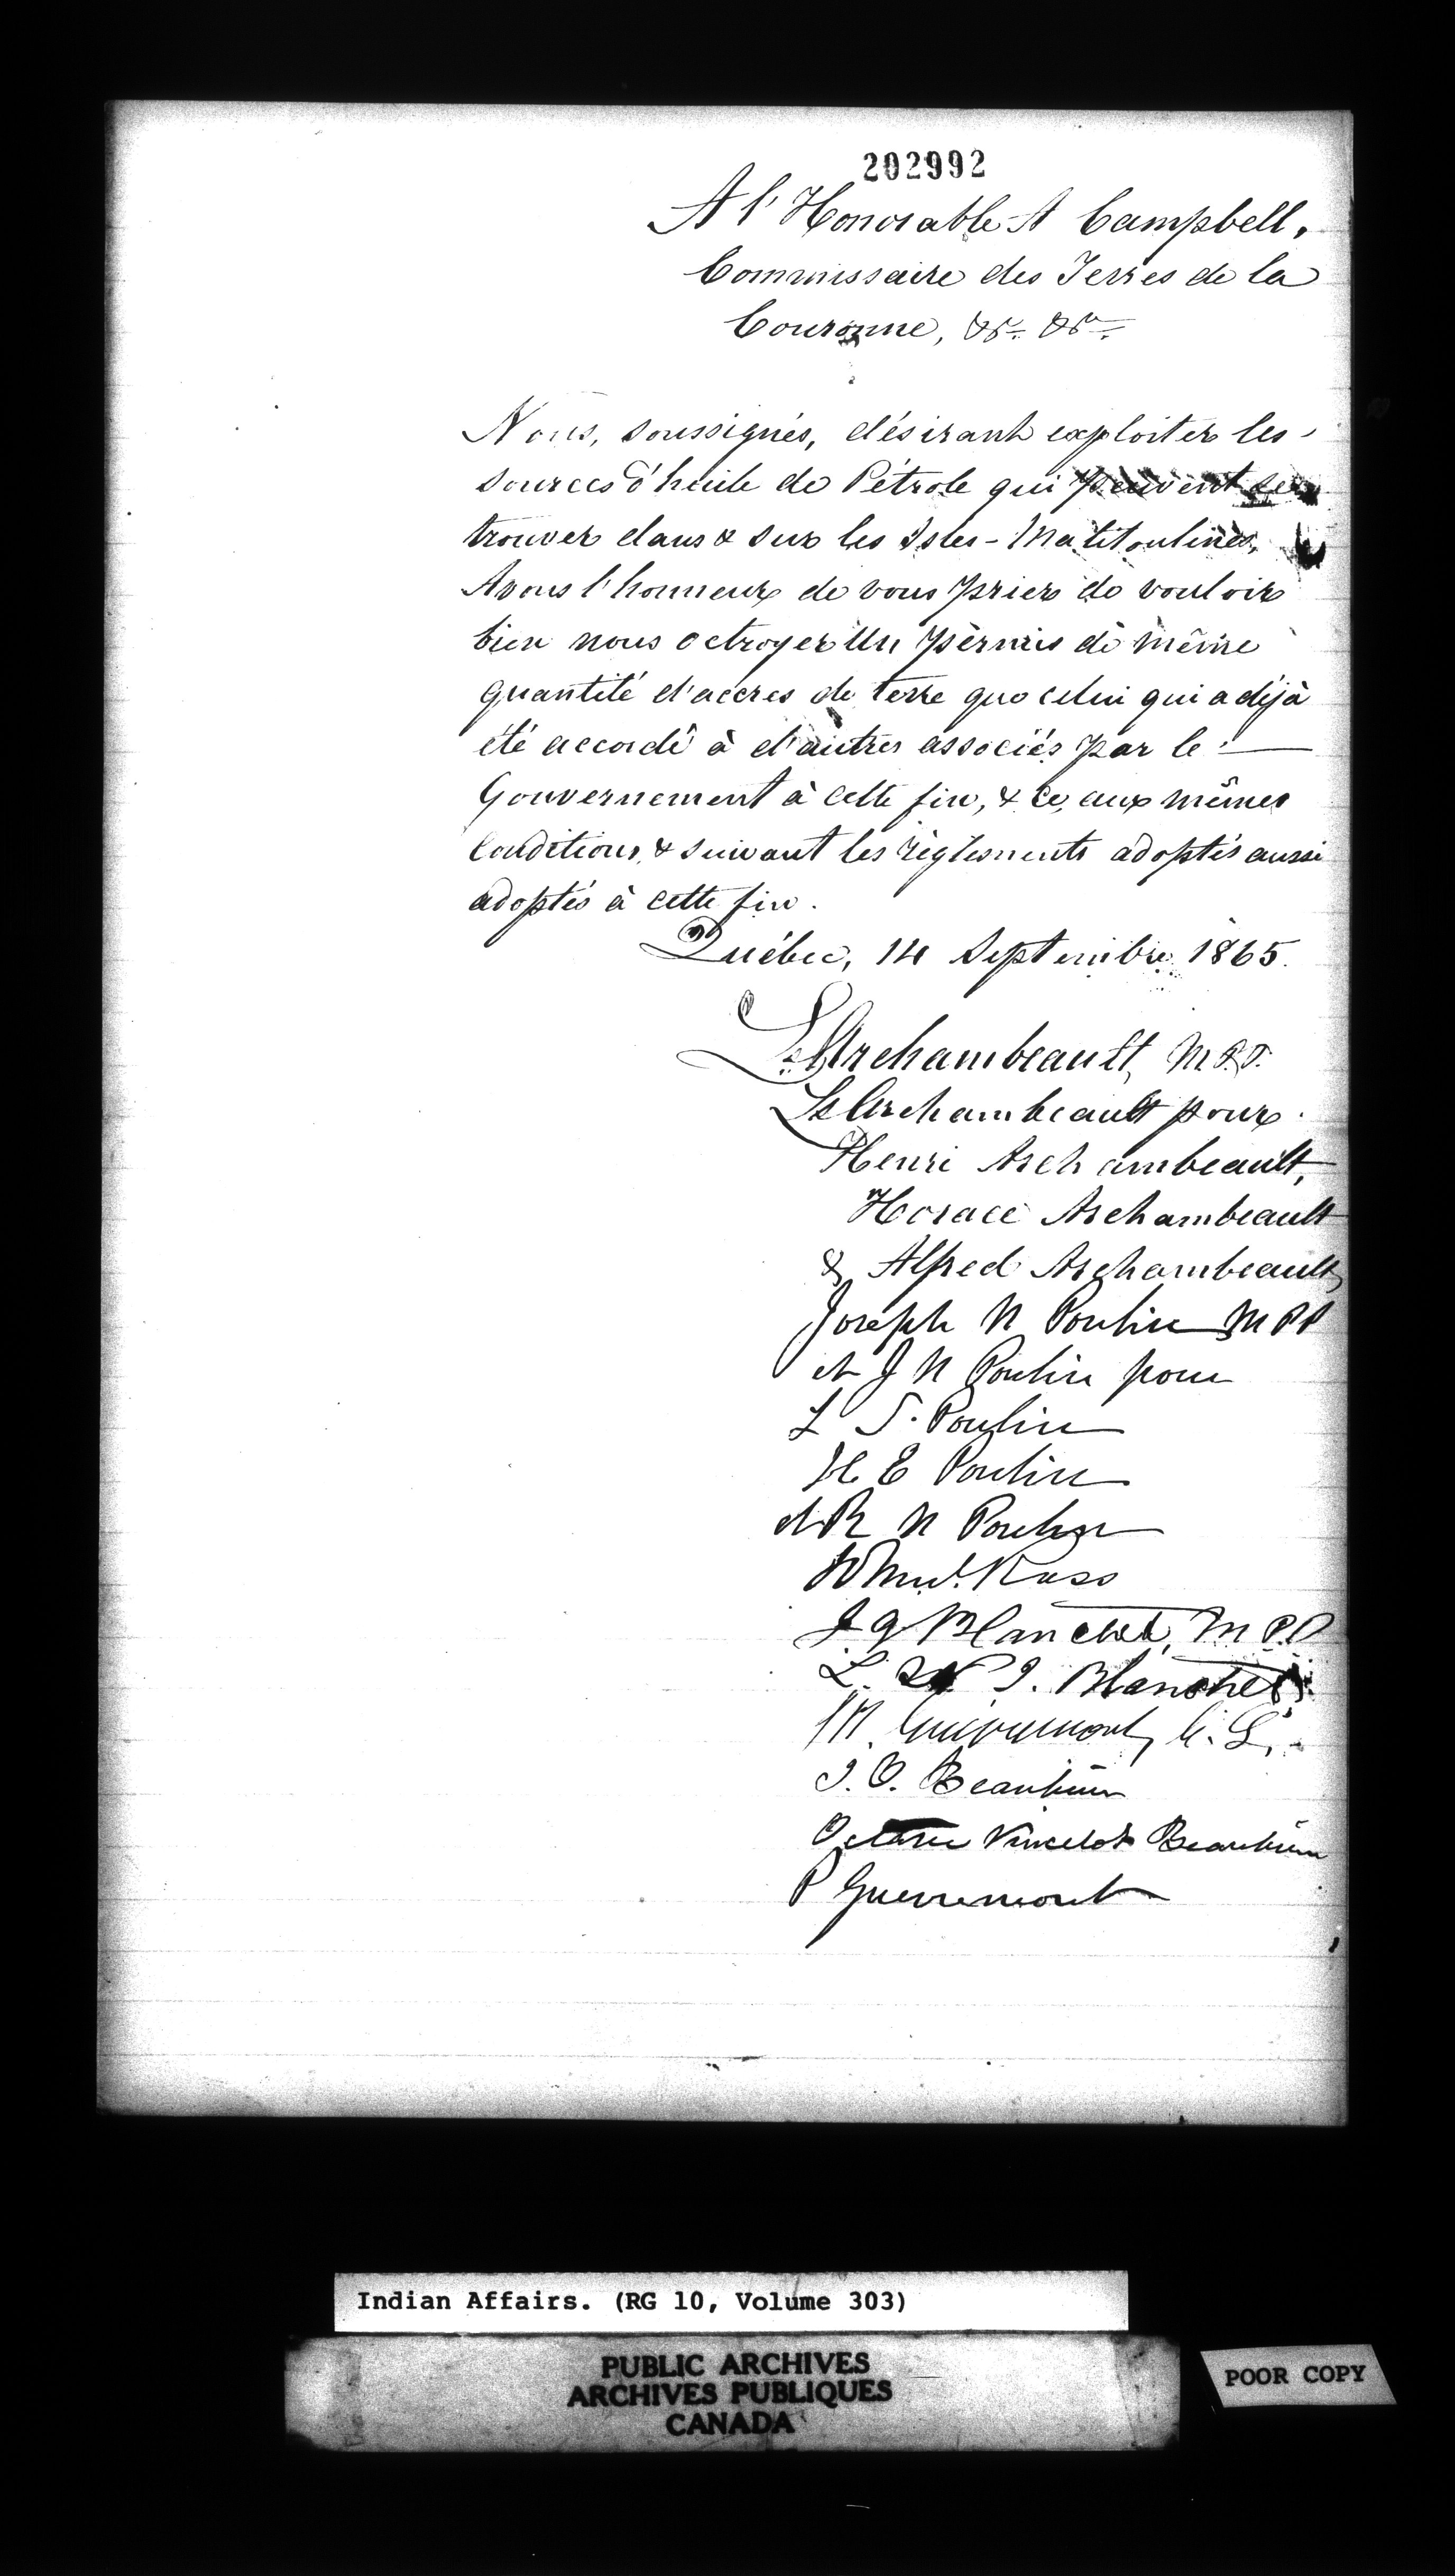 202992
A l'Honorable A Campbell,
Commissaire des Terres de la
Couronne, &c. &c.
Nous, soussignés, désirant exploiter les
sources d'huile de Pétrole qui peuvent se
trouver dans & sur les Isles-Matitoulines,
Avons l'honneur de vous prier de vouloir
bien nous octroyer Un permis de même
quantité d'accres de terre que celui qui a déjà
été accordé à d'autres associés par le
Gouvernement à cette fin, & ce, aux mêmes
conditions, & suivant les règlements adoptés aussi
adoptés à cette fin.
Québec, 14 Septembre 1865.
L Archambeault, M.P.P.
L Archambeault pour
Henri Archambeault,
Horace Archambeault
& Alfred Archambeault,
Joseph N Poulin MPP
et J N Poulin pour
L S. Poulin
H E Poulin
et R N Poulin
Ross
J G Blanchet, M.P.P
L. J. Blanchet
Guévremont,
J. O. Beaubien
Vincelot Beaubien
P Guevremont
Indian Affairs. (RG 10, Volume 303)
PUBLIC ARCHIVES
ARCHIVES PUBLIQUES
CANADA
POOR COPY